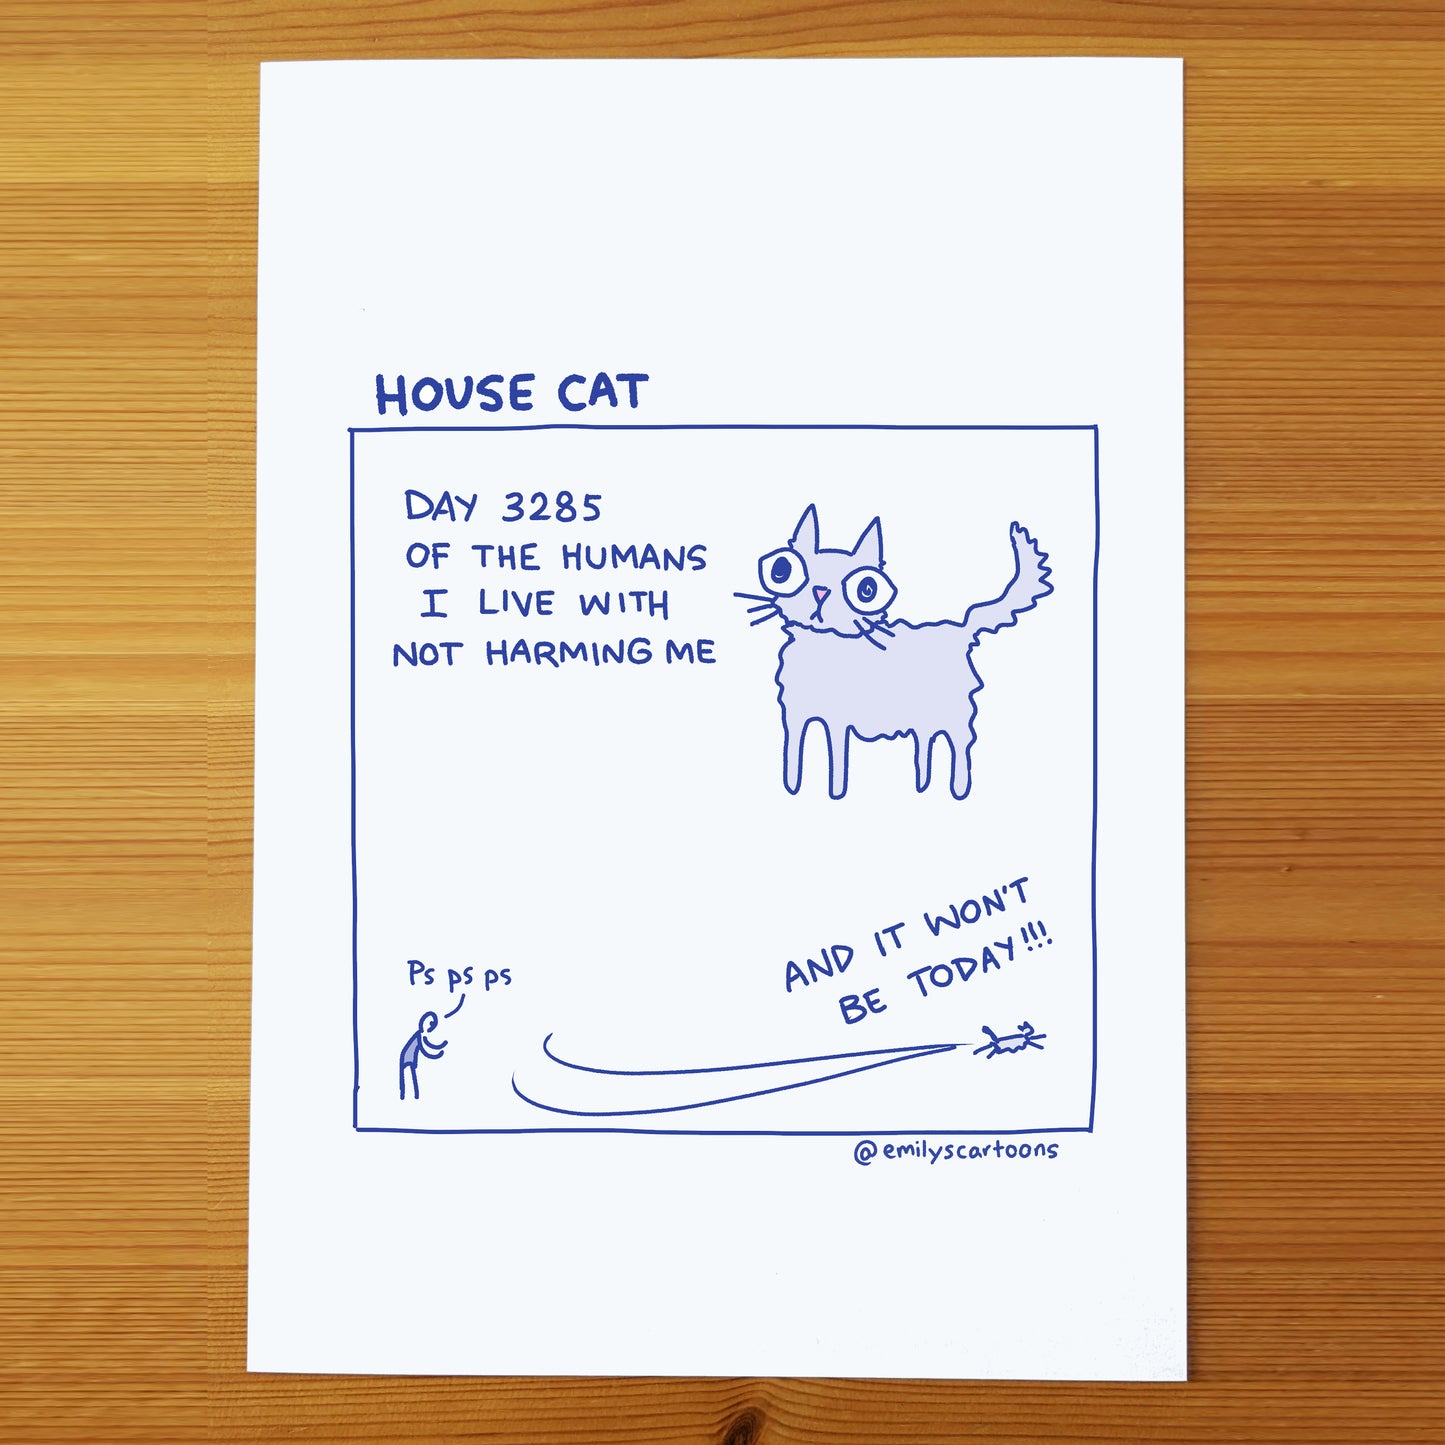 HOUSE CAT
DAY 3285
OF THE HUMANS
I LIVE WITH
NOT HARMING ME
AND IT WON'T
BE TODAY!!!
Ps ps ps
@emilyscartoons